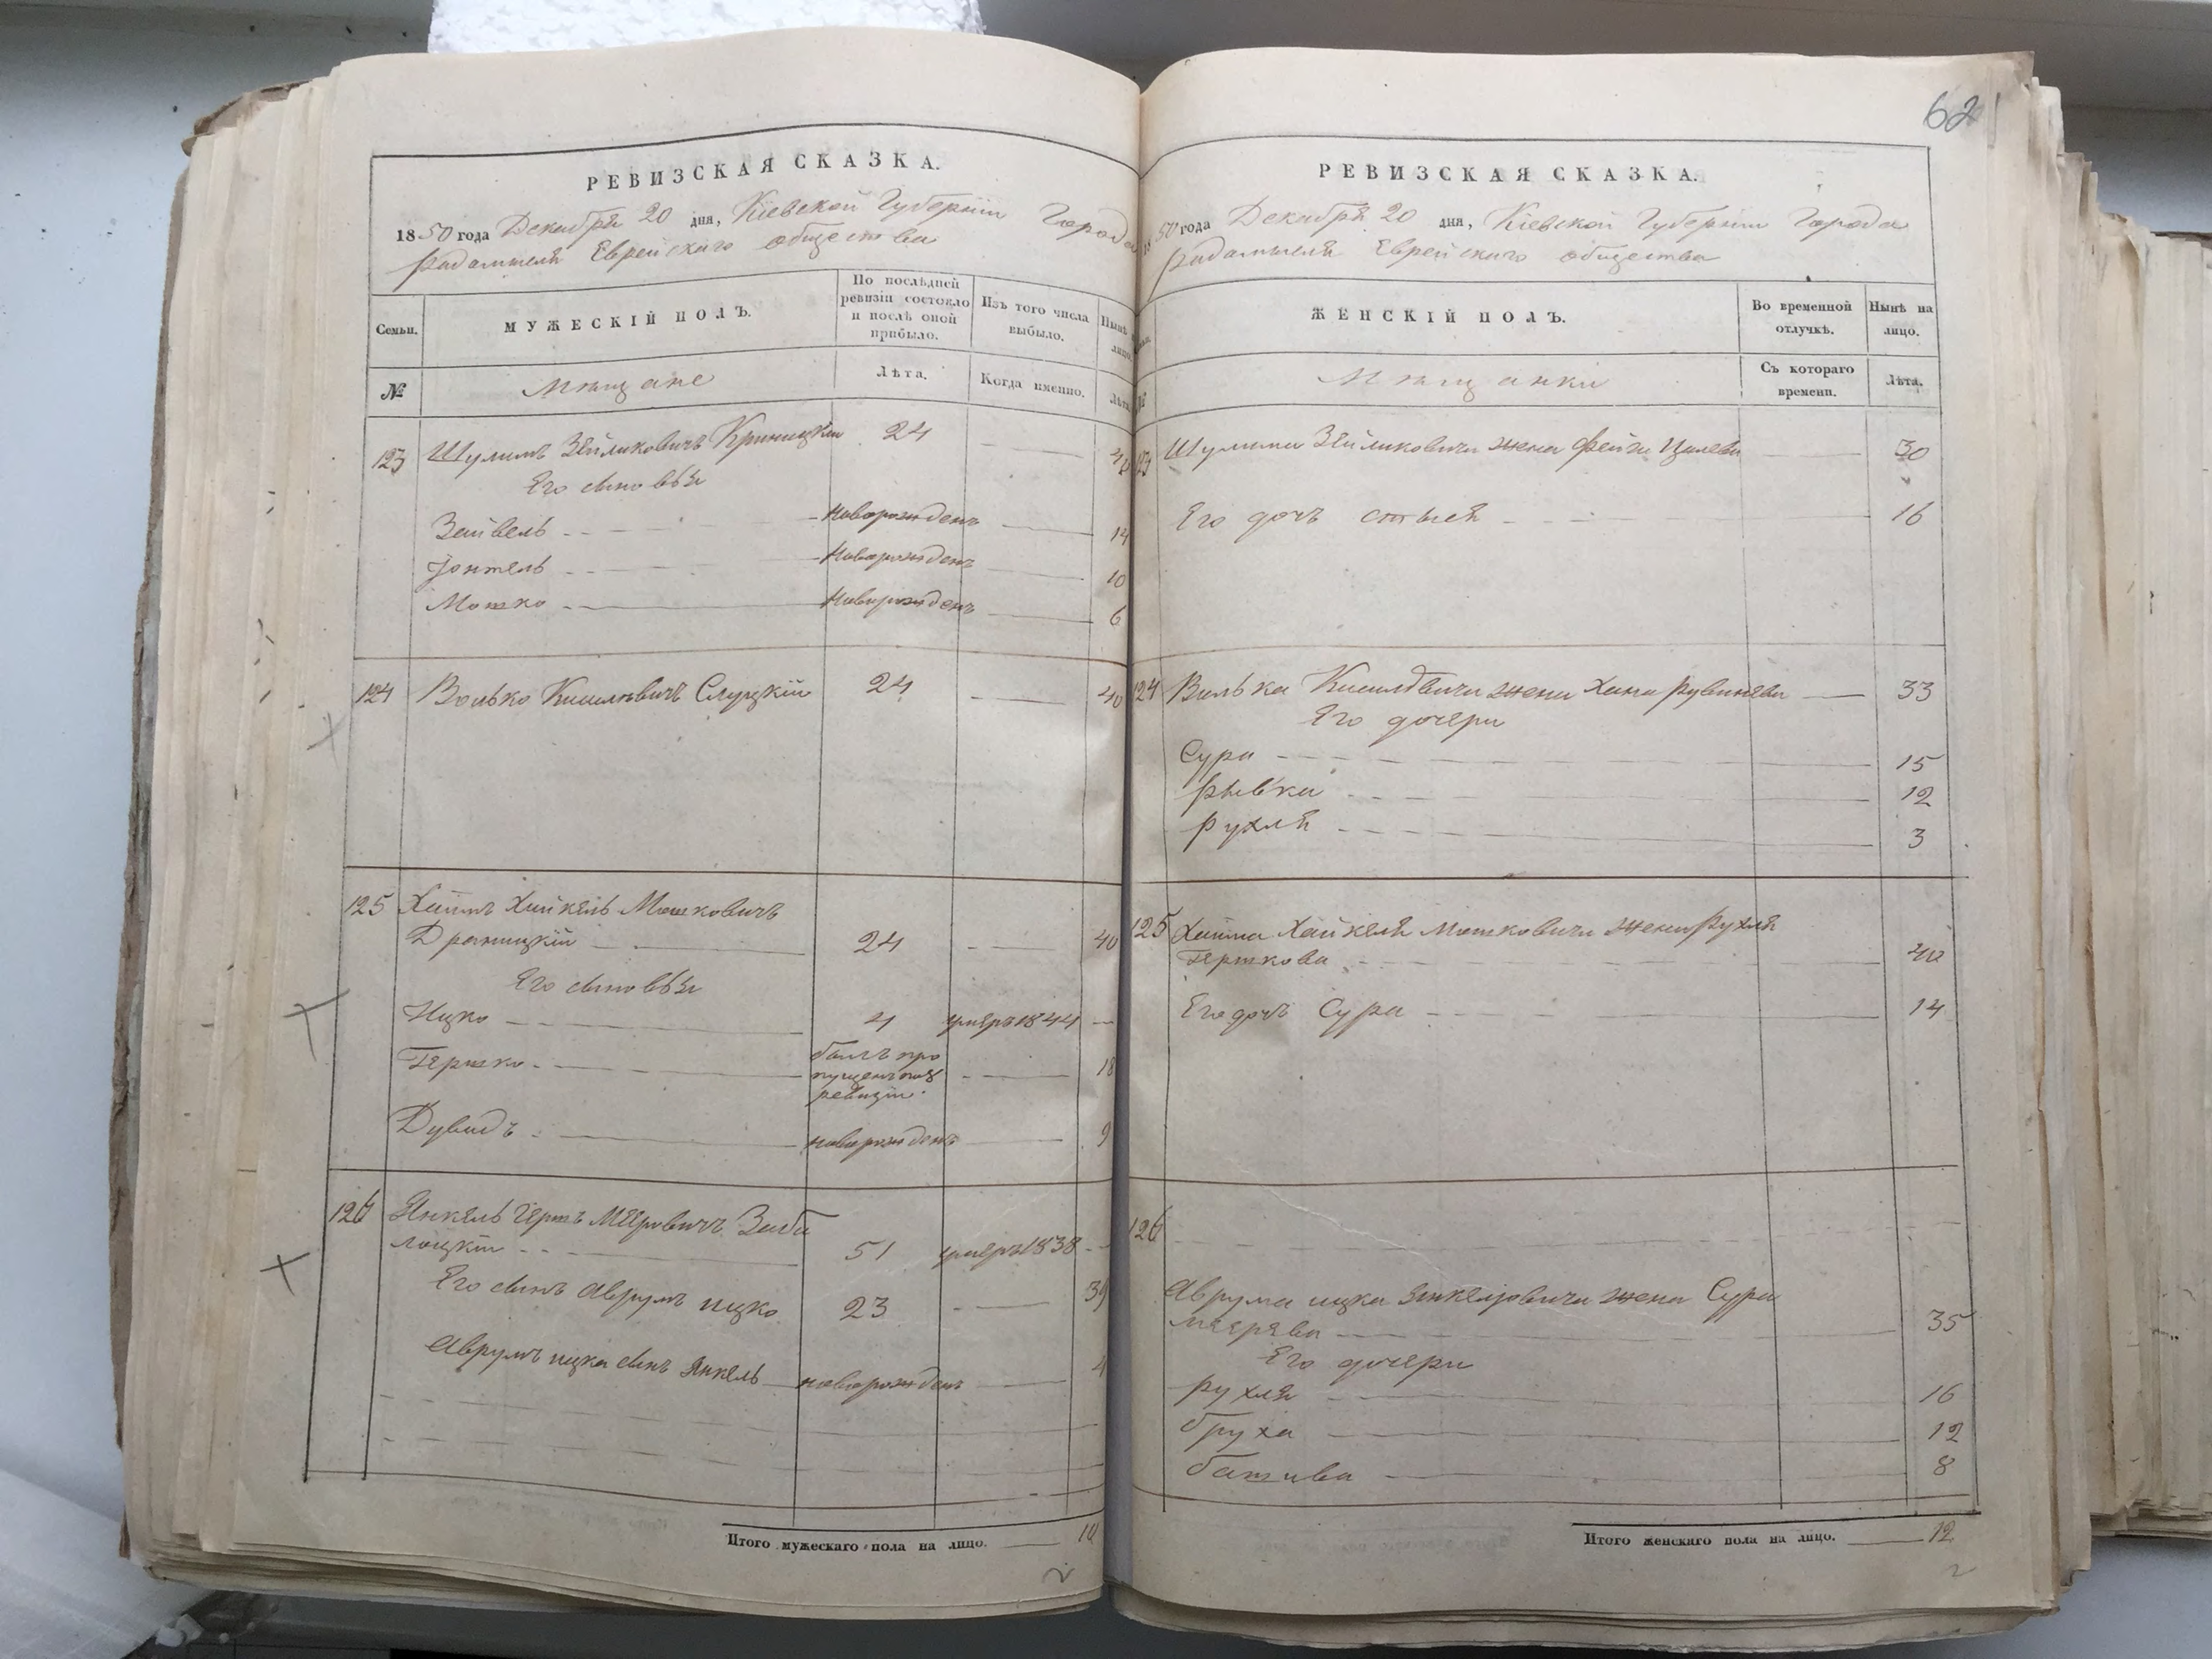 62
РЕВИЗСКАЯ СКАЗКА.
1850 года Декабря 20 дня, Кіевской Губерніи Города
Радомысля Еврейскаго общества
Семьи.
МУЖЕСКІЙ ПОЛЪ.
По послѣдней ревизіи состояло и послѣ оной прибыло.
Изъ того числа выбыло.
Нынѣ лицо.
№
Мѣщане
Лѣта.
Когда именно.
Лѣта
123 Шулимъ Зейликовичъ Криницкій 24
Его сыновья
Зейвель новорожденъ 14
Іонтель новорожденъ 10
Мошко новорожденъ 6
124 Волько Кисилевичъ Слуцкій 24 40
125 Хаимъ Хайкель Мошковичъ
Драницкій 24 40
Его сыновья
Ицко 4 умеръ 1844
Гершко былъ про
пущенъ по 8
ревизіи. 18
Дувидъ новорожденъ 9
126 Янкель Гершъ Мееровичъ Забо
лоцкій 51 умеръ 1838
Его сынъ Аврумъ ицко 23 39
Аврумъ ицка сынъ Янкель новорожденъ 4
Итого мужескаго пола на лицо. 10
РЕВИЗСКАЯ СКАЗКА.
1850 года Декабря 20 дня, Кіевской Губерніи Города
Радомысля Еврейскаго общества
ЖЕНСКІЙ ПОЛЪ.
Во временной отлучкѣ.
Нынѣ на лицо.
№
Мѣщанки
Съ котораго времени.
Лѣта.
123 Шулима Зейликовича жена Фейга 30
Его дочь 16
124 Волька Кисилевича жена Хана Рувинова 33
Его дочери
Сура 15
Рывка 12
Рухля 3
125 Хаима Хайкеля Мошковича жена Рухля
Гершкова 40
Его дочь Сура 14
126
Аврума ицка Янкелювича жена Сура
Меерева 35
Его дочери
Рухля 16
Бруха 12
Батшива 8
Итого женскаго пола на лицо. 12